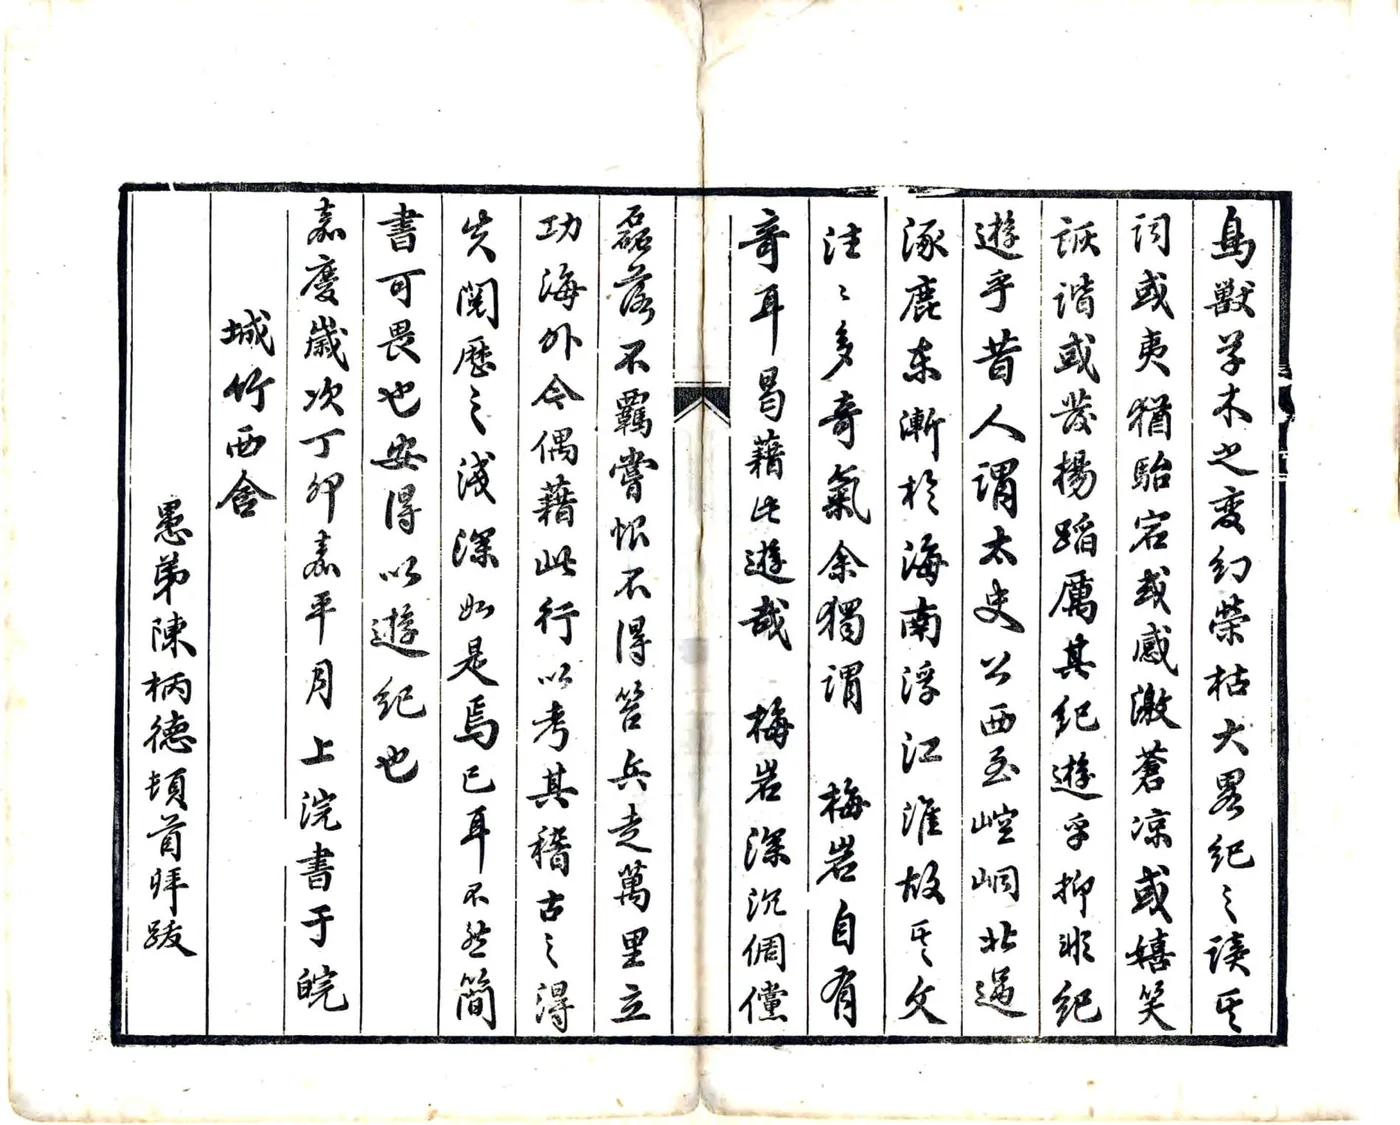 鳥獸草木之变幻榮枯大畧紀之讀其
词或夷猶駘宕或感激蒼凉或嬉笑
詼谐或发揚蹈厲其纪遊乎抑非纪
遊乎昔人谓太史公西至崆峒北過
涿鹿东漸於海南浮江淮故其文
往〻多奇氣余獨谓 梅岩自有
奇耳曷藉此遊哉 梅岩深沉倜儻
磊落不羈嘗恨不得笞兵走萬里立
功海外今偶藉此行以考其稽古之得
失閱歷之浅深如是焉已耳不然简
書可畏也安得以遊纪也
嘉慶歲次丁卯嘉平月上浣書于皖
城竹西舍
愚弟陳柄德頓首拜跋